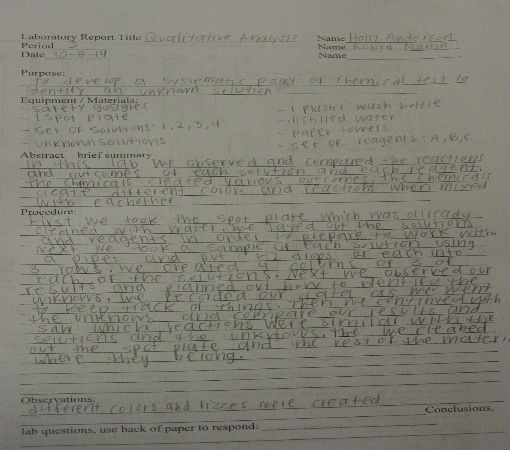 Laboratory Report Title Qualitative Analysis Name Holly Anderson
Period 3 Name Robyn Martin
Date 10-8-14 Name
Purpose:
To develop a systematic paget of chemical test to
identify an unknown solution
Equipment / Materials:
- safety goggles - 1 plastic wash bottle
- 1 spot plate - distilled water
- set of solutions: 1, 2, 3, 4 - paper towels
- unknown solutions - set of reagents: A, B, C
Abstract brief summary
In this lab we observed and compared the reactions
and outcomes of each solution and each reagent.
the chemicals created various outcomes. the chemicals
create different colors and reactions when mixed
with eachother
Procedure:
First we took the spot plate which was allready
cleaned with water. we layed out the solutions
and reagents in order to prepare to work with.
Next we took a sample of each solution using
a pipet and put 1-2 drops of each into
3 rows. we created 4 coloms of 3 of
each of the solutions. Next we observed our
results and planned out how to identify the
unknowns. we recorded our data as we went
to keep track of things. Then we continued with
the unknowns and compare our results and
saw which reactions were similar with the
solutions and the unknowns. the we cleaned
out the spot plate and the rest of the materi
where they belong.
Observations:
different colors and fizzes were created
Conclusions,
lab questions, use back of paper to respond: